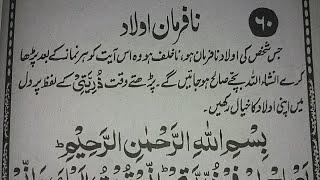 ۶۰
نافرمان اولاد
جس شخص کی اولاد نافرمان ہو، ناخلف ہو وہ اس آیت کو ہر نماز کے بعد پڑھا
کرے انشاء اللہ بچے صالح ہو جائیں گے۔ پڑھتے وقت ذُرِّيَّتِيْ کے لفظ پر دل
میں اپنی اولاد کا خیال رکھیں۔
بِسْمِ اللّٰهِ الرَّحْمٰنِ الرَّحِيْمِ